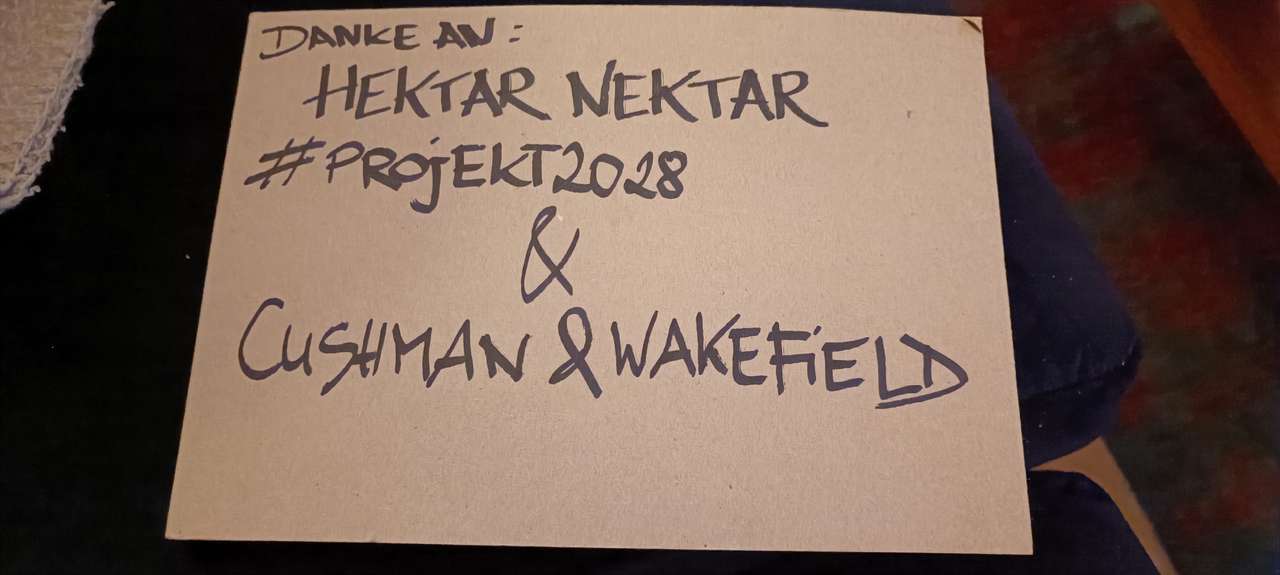 DANKE AN:
HEKTAR NEKTAR
#PROjEKT2028
&
CUSHMAN & WAKEFiELD